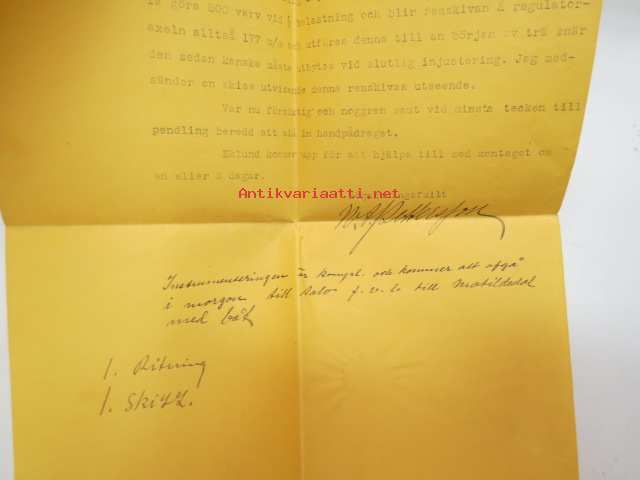 göra 200 varv vid belastning och blir remskivan å regulator-
axeln alltså 177 m/m och utföres denna till en början av trä enär
den sedan kanske måste utbytas vid slutlig injustering. Jag med-
sänder en skiss utvisande denna remskivas utseende.
Var nu försiktig och noggran samt vid minsta tecken till
pendling beredd att slå in handpådraget.
Eklund kommer upp för att hjälpa till med montaget om
en eller 2 dagar.
Antikvariaatti.net
Instrumenteringen är kompl. och kommer att afgå
i morgon till Salo f.v.b. till Mathildedal
med båt
1. Ritning
1. Skizz.